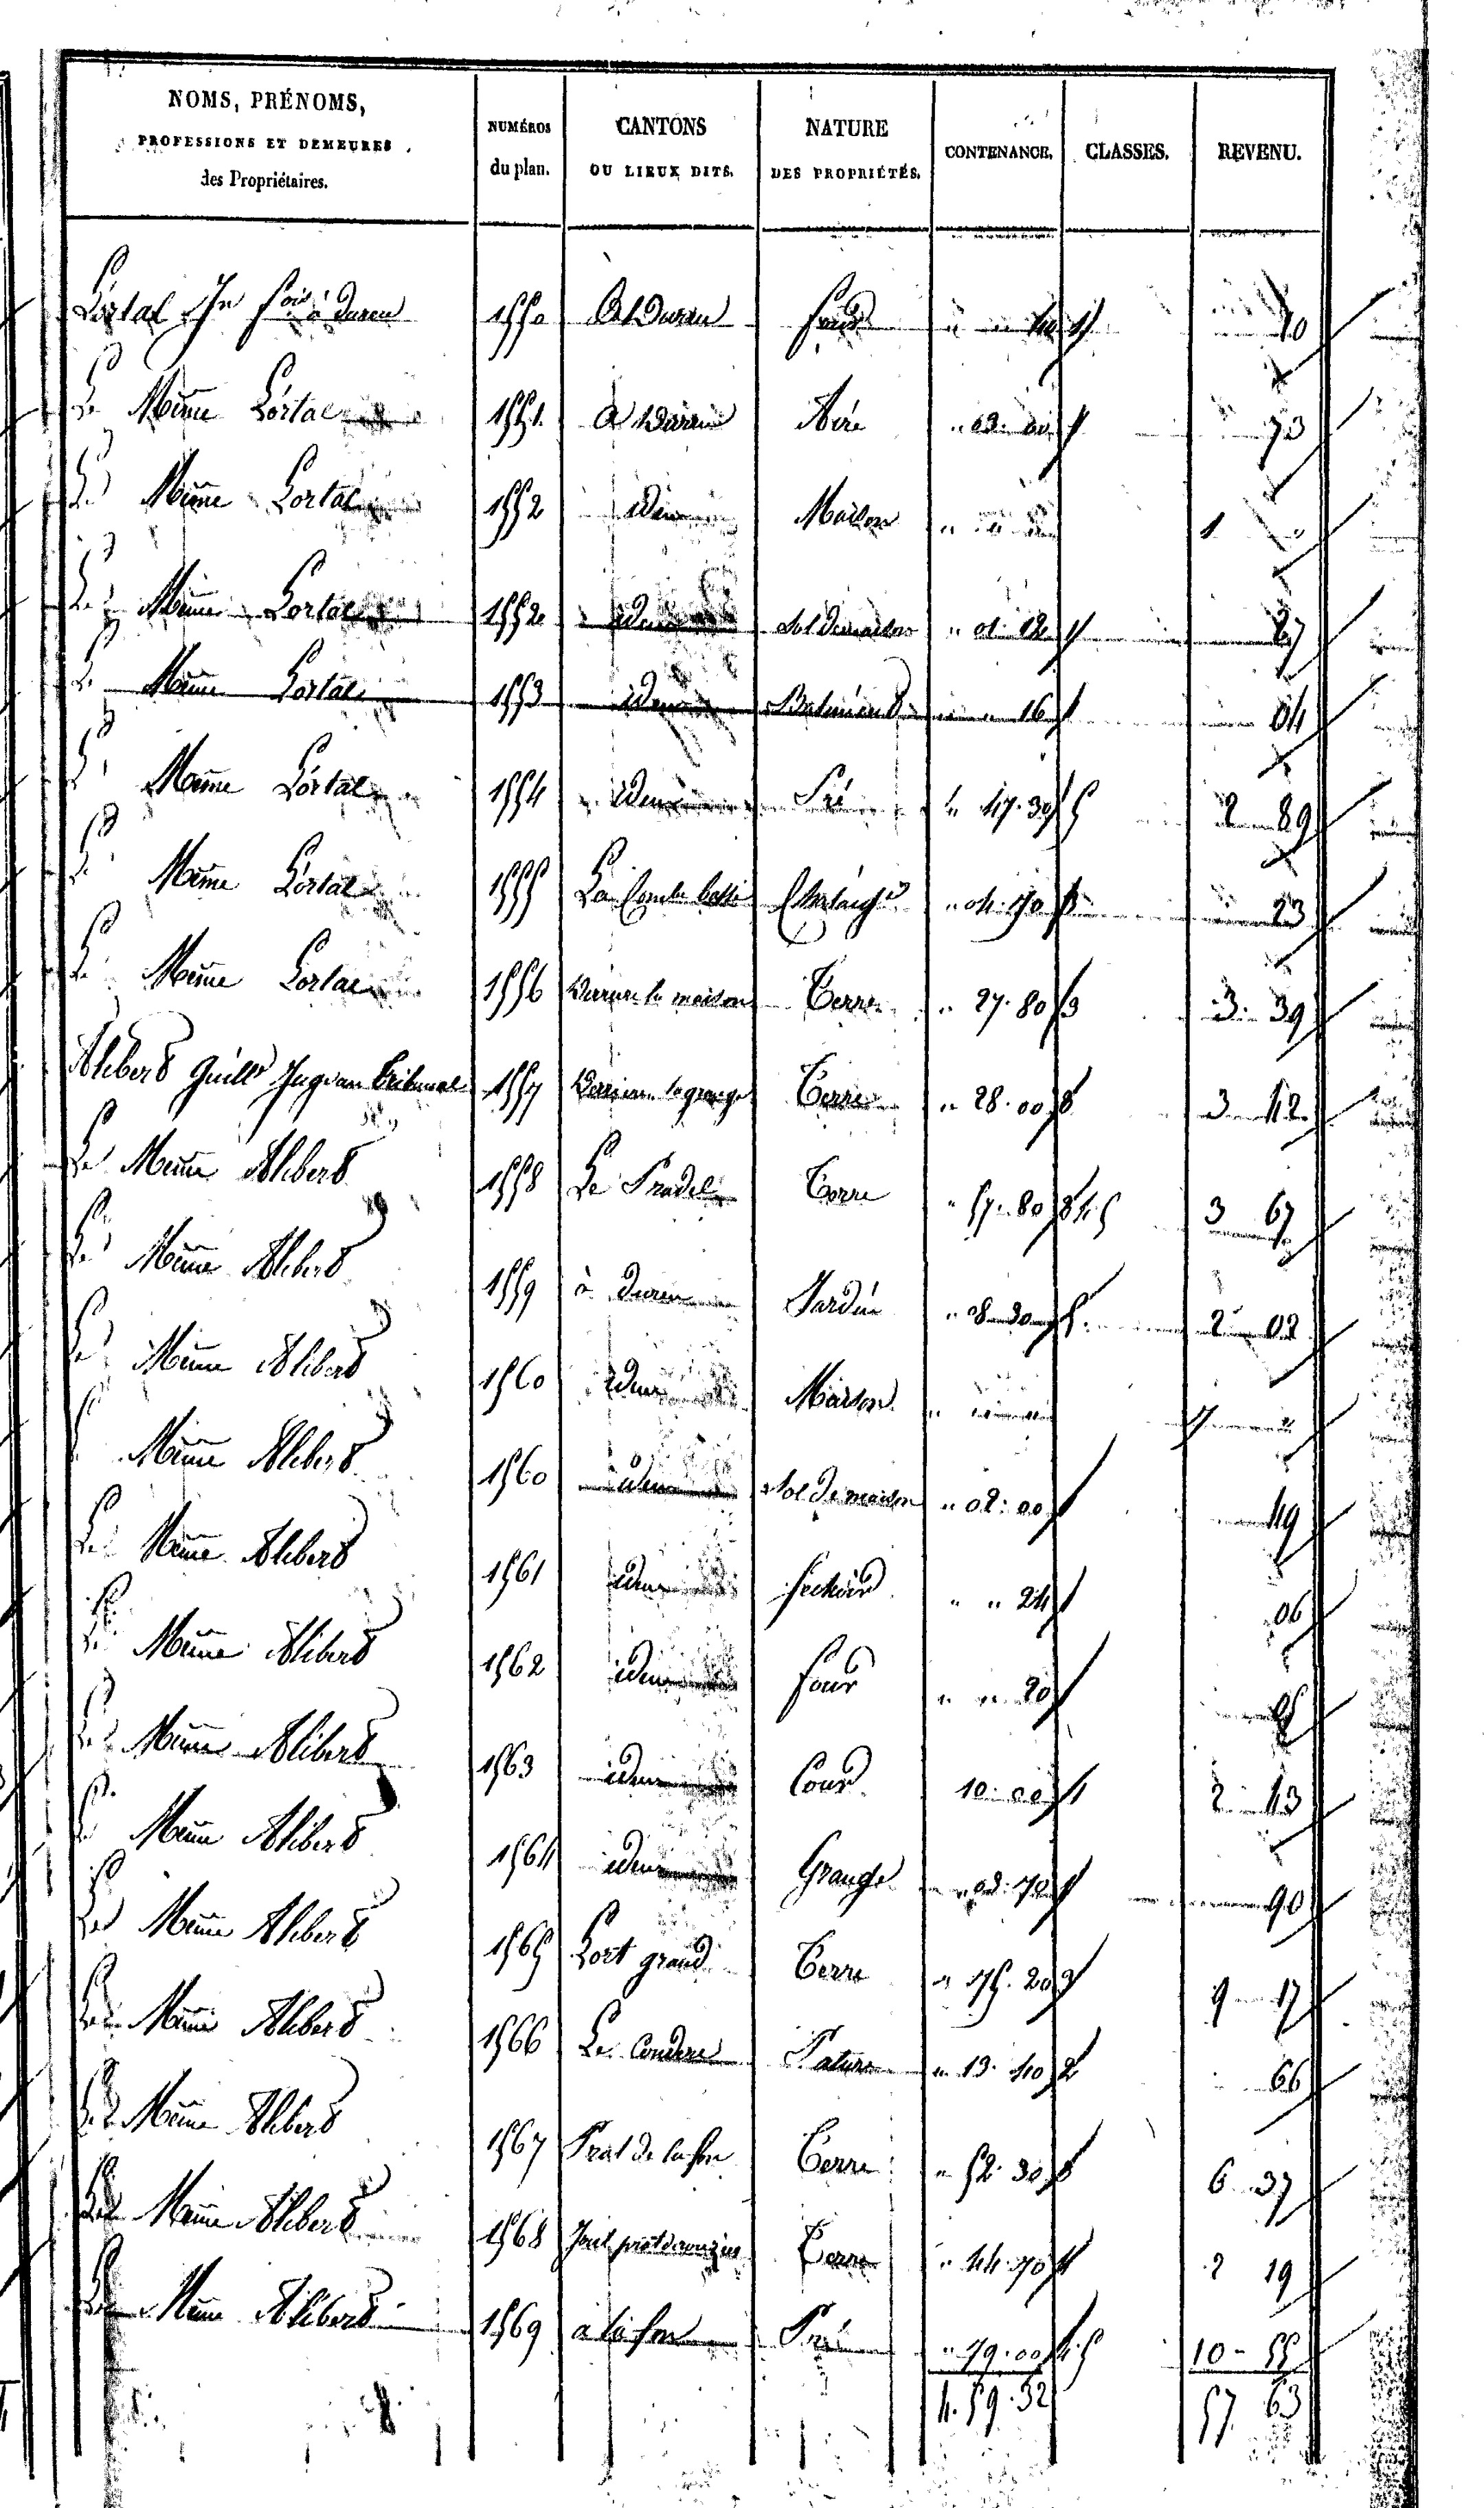 NOMS, PRÉNOMS, PROFESSIONS ET DEMEURES des Propriétaires. NUMÉROS du plan. CANTONS OU LIEUX DITS. NATURE DES PROPRIÉTÉS. CONTENANCE. CLASSES. REVENU.
Lortal Jn fois à Duren 1550 four 10
Le Même Lortal 1551 Aire 73
Le Même Lortal 1552 idem Maison 1 "
Le Même Lortal 1552 idem Sol de maison " 01. 12 27
Le Même Lortal 1553 idem Batiment " " 16 04
Le Même Lortal 1554 idem Pré " 47. 30 5 2 89
Le Même Lortal 1555 La Combe basse " 04. 70 23
Le Même Lortal 1556 Derriere la maison Terre " 27. 80 3 3 39
Alibert Guille Juge au tribunal 1557 Derriere la grange Terre " 28. 00 3 3 42
Le Même Alibert 1558 Le Pradel Terre " 57. 80 3 4 5 3 67
Le Même Alibert 1559 à Duren Jardin 2 02
Le Même Alibert 1560 idem Maison
Le Même Alibert 1560 idem Sol de maison " 02. 00 49
Le Même Alibert 1561 idem Sechoir " " 24 06
Le Même Alibert 1562 idem four " " 20
Le Même Alibert 1563 idem Cour 10. 00 1 2 43
Le Même Alibert 1564 idem Grange 90
Le Même Alibert 1565 Lort grand Terre " 75. 20 9 17
Le Même Alibert 1566 Le Couderc Pature " 13. 40 2 66
Le Même Alibert 1567 Prat de la fon Terre " 52. 30 3 6 37
Le Même Alibert 1568 Terre " 44. 70 4 2 19
Le Même Alibert 1569 à la fon Pré " 79. 00 4. 5 10 - 55
4. 59. 32 57 63